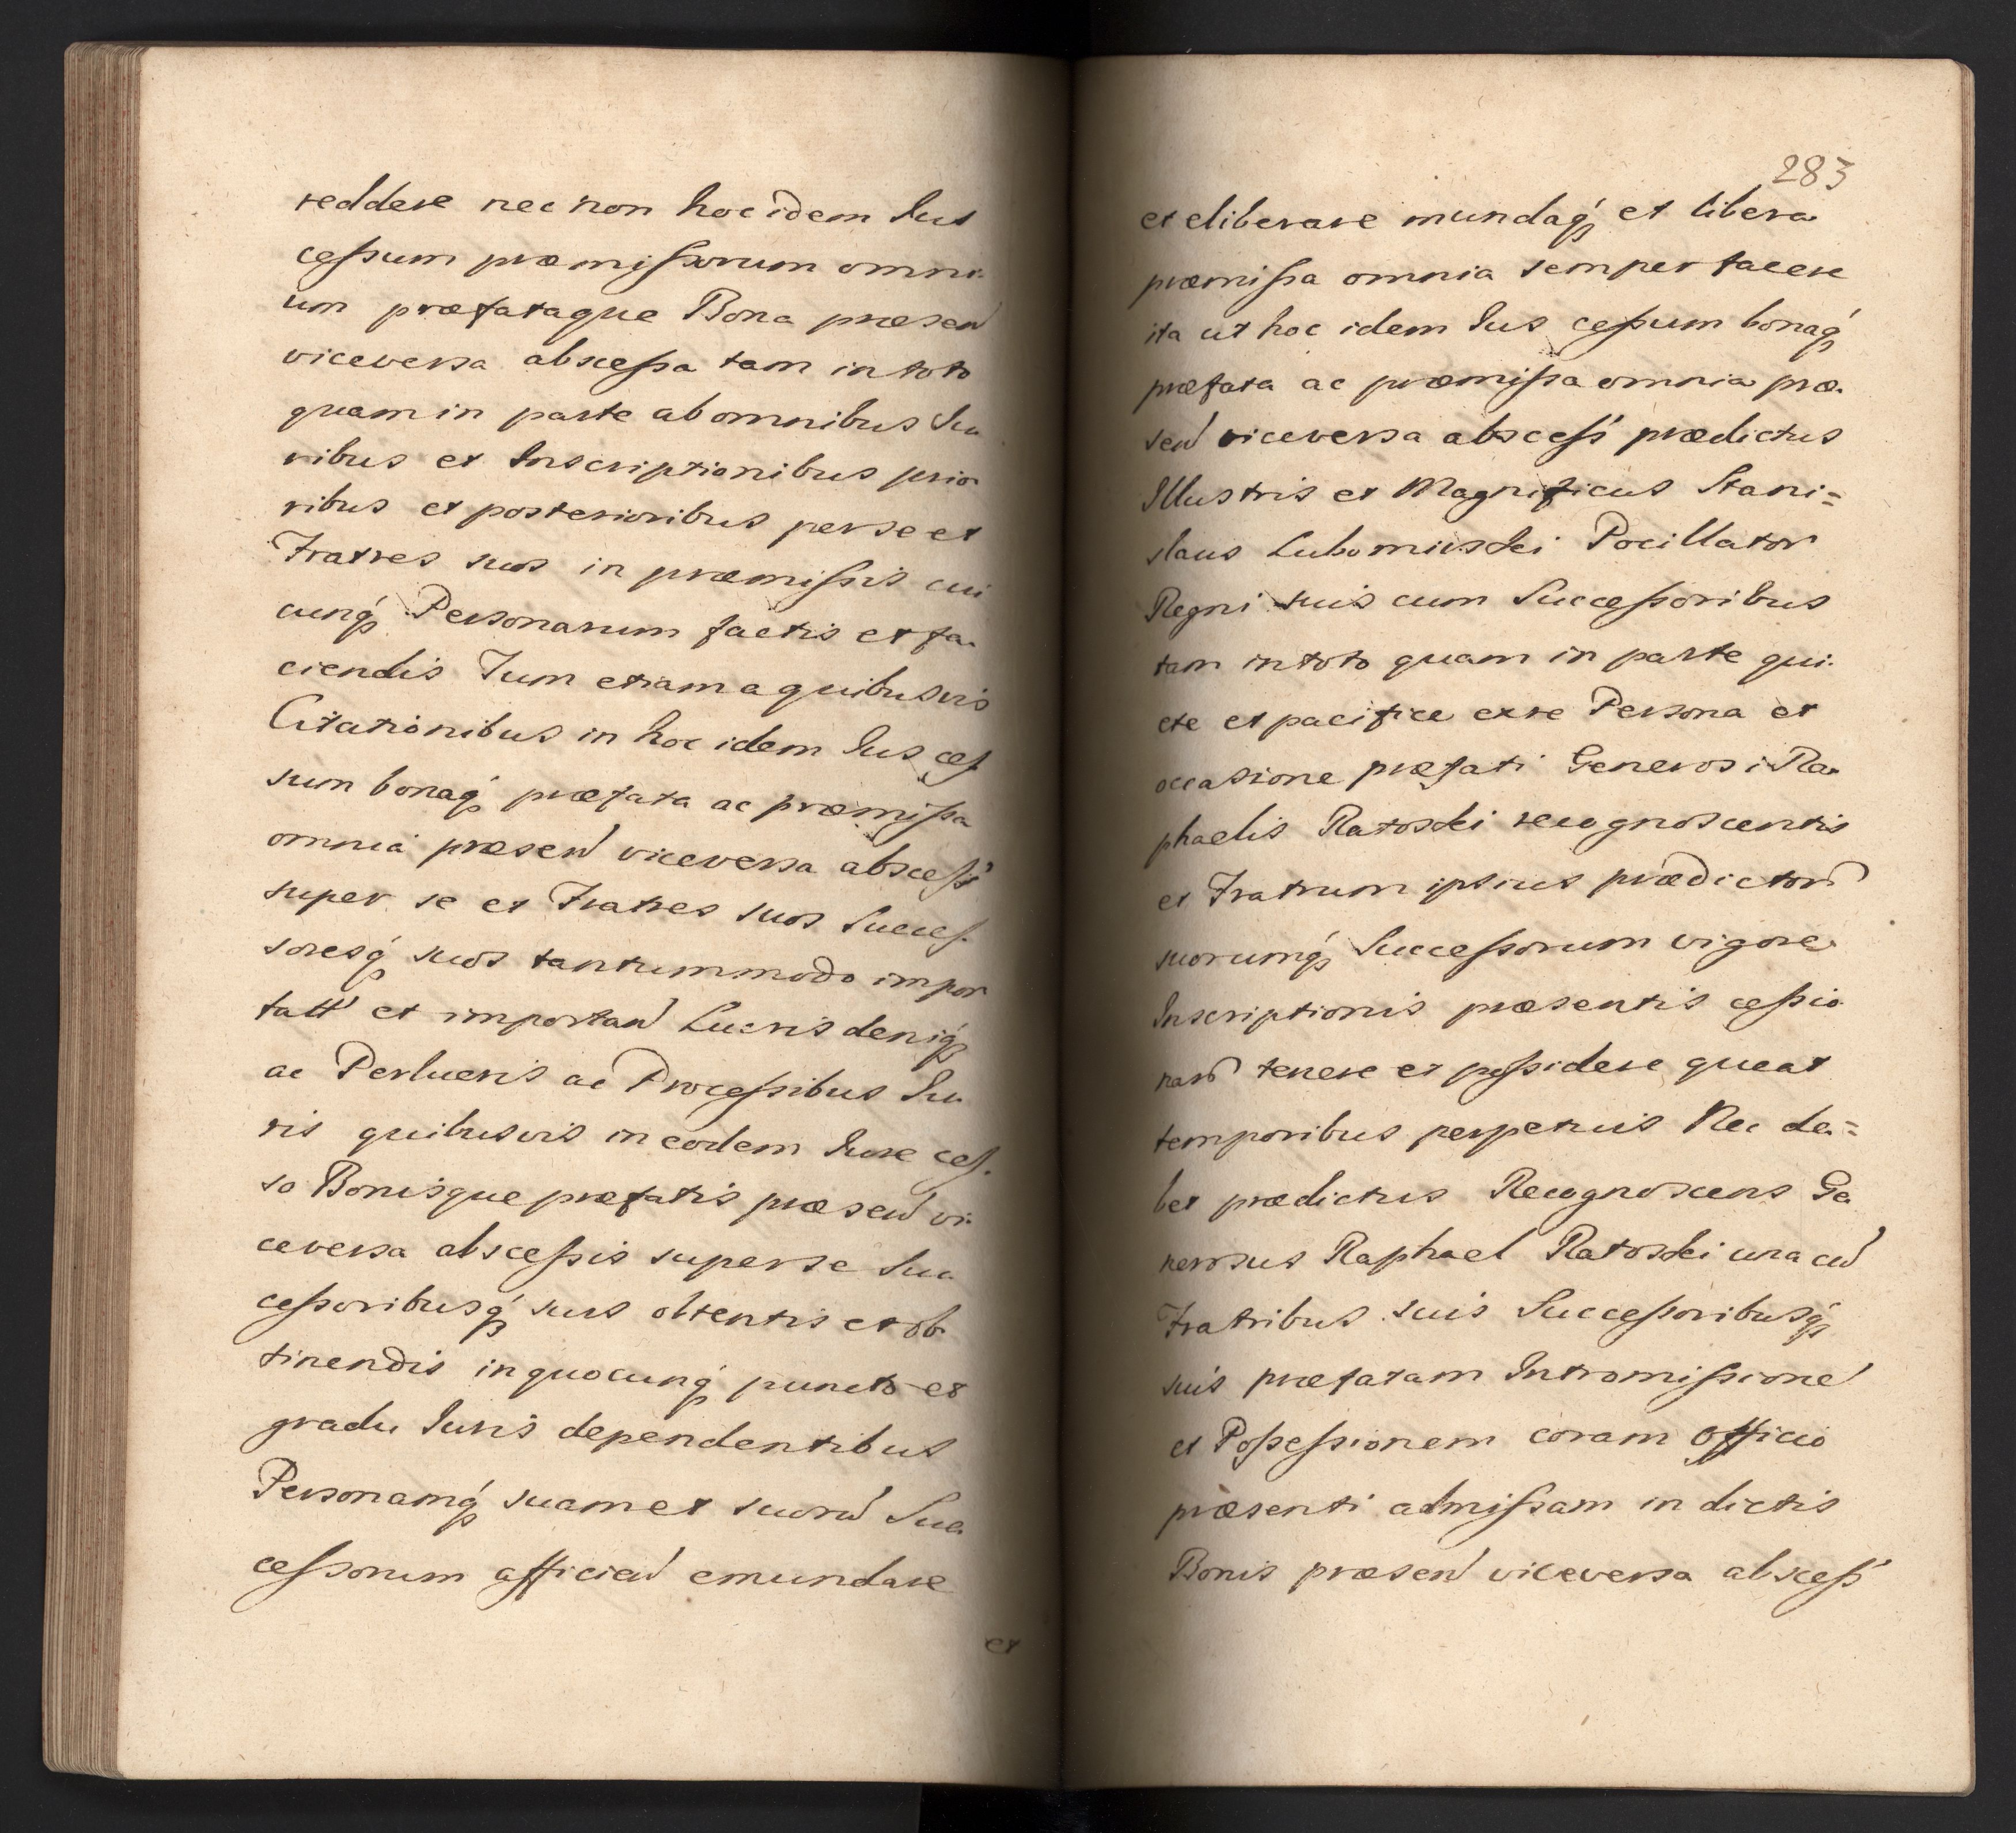 reddere nec non hoc idem Ius
cessum præmissorum omni-
um præfataque Bona præsen
viceversa abscessa tam in toto
quam in parte ab omnibus Iu
ribus et Inscriptionibus prio
ribus et posterioribus per se et
Fratres suos in præmissis cui
cunq Personarum factis et fa-
ciendis Tum etiam a quibusvis
Citationibus in hoc idem Ius ces
sum bonaq præfata ac præmissa
omnia præsen viceversa abscess
super se et Fratres suos Succes-
soresq suos tantummodo impor
tatt et importan Lucris deniq
ac Perlucris ac Processibus Iu
ris quibusvis in eodem Iure ces-
so Bonisque præfatis præsen vi-
ceversa abscessis super se Suc
cessoribusq suis obtentis et ob
tinendis in quocunq puncto et
gradu Iuris dependentibus
Personamq suam et suoru Suc
cessorum afficien emundare
et
283
et eliberare mundaq et libera
præmissa omnia semper facere
ita ut hoc idem Ius cessum bonaq
præfata ac præmissa omnia præ-
sen viceversa abscess prædictus
Illustris et Magnificus Stani=
slaus Lubomirski Pocillator
Regni suis cum Successoribus
tam in toto quam in parte qui-
ete et pacifice exre Persona et
occasione præfati Generosi Ra-
phaelis Ratoski recognoscentis
et Fratrum ipsius prædictor
suorumq Successorum vigore
Inscriptionis præsentis cessio
nar tenere et possidere queat
temporibus perpetuis Nec de=
bet prædictus Recognoscens Ge
nerosus Raphael Ratoski una cu
Fratribus suis Successoribusq
suis præfatam Intromissione
et Possessionem coram Officio
præsenti admissam in dictis
Bonis præsen viceversa abscess